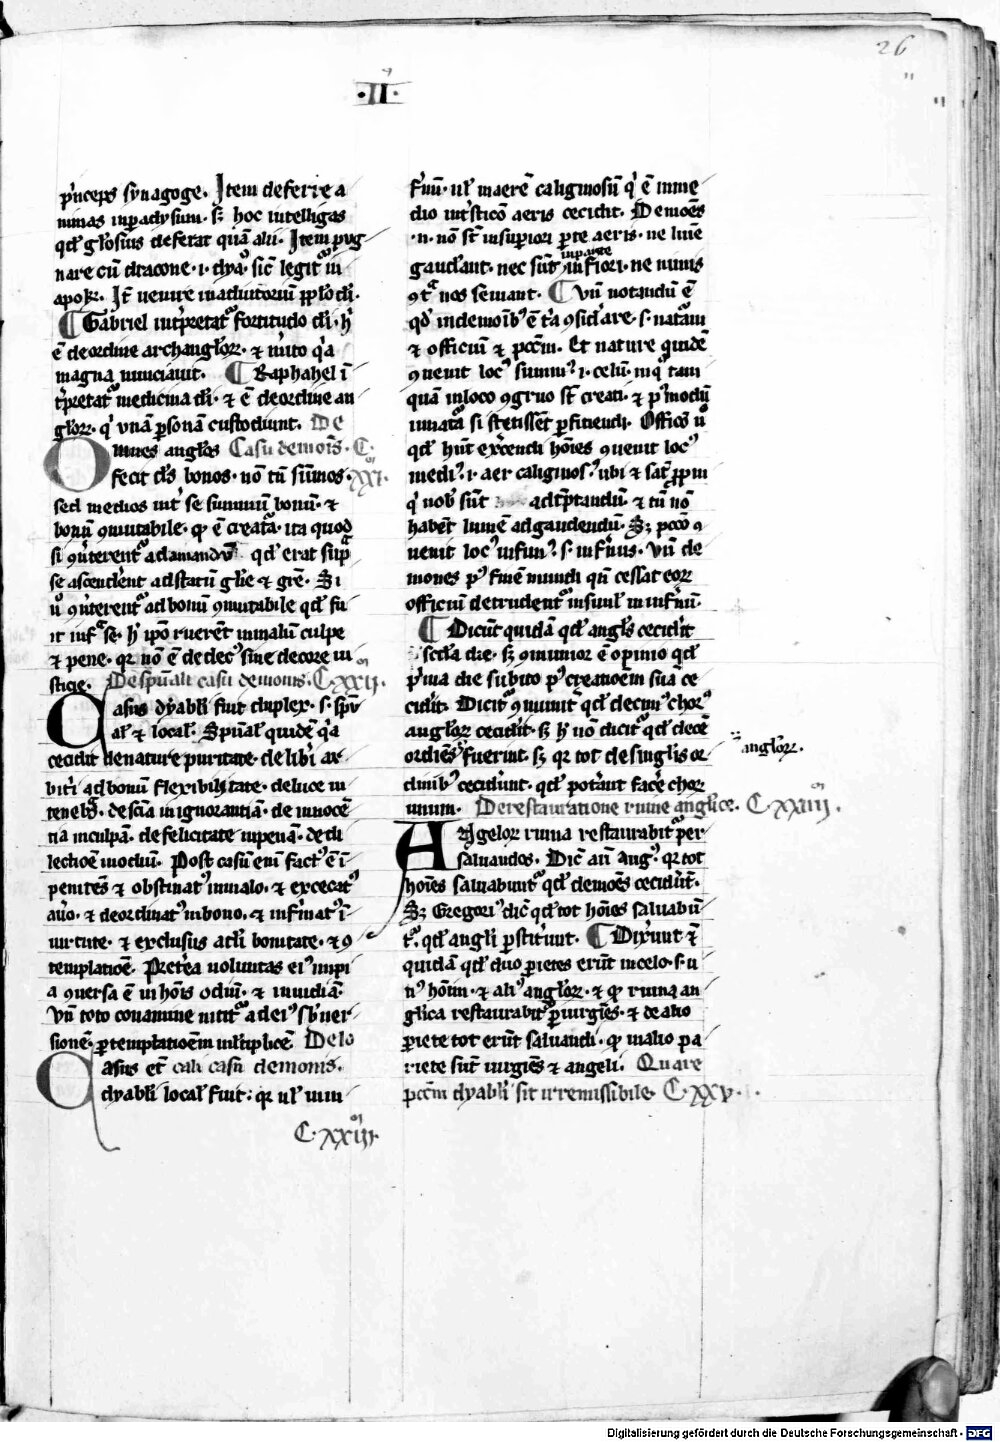 26
·II·
p͛nceps synagoge. Item deferre a
nimas in paradysum. sꝫ hoc intelligas
qđ glo͛sius deferat quā alii. Item pug
nare cū dracone .i. dya͛. sic̄ legit᷑ in
apoꝃ. It̄ uenire in adiutoriū pp̄lo dī.
Gabriel int͛pretat᷑ fortitudo dī. h͛
ē de ordine archangloꝝ. ⁊ inuito q͛a
magna nunciauit. Raphahel ī
t͛pretat᷑ medicina dī. ⁊ ē de ordine an
gloꝝ. q͛ unā ꝑsonā custodiunt. De
Omnes anglos Casu demonis. C.
fecit ds̄ bonos. nō tn̄ sūmos. XXI.
sed medios int͛ se summū bonū. ⁊
bonū ꝯmutabile. qͦ ē creatᷓa. ita quod
si ꝯuterent᷑ ad amandū qđ erat supᷓ
se ascenderent ad statū gl̄ie ⁊ gr̄e. Si
ů ꝯuterent᷑ ad bonū ꝯmutabile qđ fu
it infᷓ se. h͛ ipō ruerent in malū culpe
⁊ pene. qꝛ nō ē dedec᷒ sine decore iu
sticie. De spūali casu demonis. C XXII.
Casus dyabli fuit duplex. s. spū
al̄ ⁊ local̄. Spūal̄ quidē q͛a
cecidit de nature puritate. de lib͛i ar
bit͛i ad bonū flexibilitate. de luce in
tenebᷓs. de scīa in ignorantiā. de innocē
tia in culpā. de felicitate in penā. de di
lectōe in odiū. Post casū eni fact᷒ ē ī
penitēs ⁊ obstinat᷒ in malo. ⁊ excecat᷒
a uo. ⁊ deordinat᷒ in bono. ⁊ infirmat᷒ ī
uirtute. ⁊ exclusus a dī bonitate. ⁊ ꝯ
templatiōe. Pret͛ea uoluntas ei᷒ impi
a ꝯuersa ē in hoīs odiū. ⁊ inuidiā.
Vn̄ toto conamine nitit᷑ ad ei᷒ sb̄uer
sionē. ꝑ temptatiōem ml̄tiplicē. De lo
Casus et̄ cali casu demonis.
dyabli local̄ fuit: qꝛ ul̄ in in
C. XXIII.
f͛nū. ul̄ in aerē caliginosū q͛ ē in me
dio int͛sticō aeris cecidit. Demoēs
.n. nō sūt in supiori ꝑte aeris. ne lum̄e
gaudeant. nec sūt in inparte fiori. ne nimis
ꝯtᷓ nos seuiant. Vn̄ notandū ē
qđ in demoīb᷒ ē t͛a ꝯsid͛are. s. natᷓam
⁊ officiū ⁊ pcc̄m. Et nature quidē
ꝯuenit loc᷒ summ᷒ .i. celū. in qͦ tam
quā in loco ꝯgruo sūt creati. ⁊ ꝑ modū
innatᷓ si stetissēt ꝑficiendi. Officō ů
qđ hn̄t ex͛cendi hoīes ꝯuenit loc᷒
medi᷒ .i. aer caliginos᷒. ubi ⁊
q͛ nob̄ sūt ad t̄ptandū. ⁊ tn̄ nō
habēt lumē ad gaudendū. Sꝫ pccō ꝯ
uenit loc᷒ infim᷒ .s. inf͛nus. Vn̄ de
mones p᷒ finē mundi qn̄ cessat eoꝝ
officiū detrudent᷑ insimul in inf͛nū.
Dicūt quidā qđ angls̄ cecid͛it
scd̄a die. sꝫ ꝯmunior ē opinio qđ
p͛ma die subito p᷒ creatioēm sua ce
cid͛it. Dicit᷑ ꝯmunit͛ qđ decim᷒ chor᷒
angloꝝ cecid͛it. sꝫ h͛ nō dicit᷑ qđ decē
ordiēs fuerint. sꝫ qꝛ tot de singlis or
dinib᷒ cecid͛unt. qđ potᷓant fac͛e chor
angloꝝ.
unum. De restauratione ruine anglice. C. XXIIII.
Angeloꝝ ruina restaurabit᷑ ꝑ
saluandos. Dic̄ aū Aug᷒. qꝛ tot
hoīes saluabunt᷑ qđ demoēs cecid͛ūt.
Sꝫ Gregori᷒ dic̄ qđ tot hoīes saluabū
t᷑. qđ angli ꝑstit͛unt. Dix͛unt ⁊̄
quidā qđ duo parietes erūt in celo. s. u
n᷒ hoīm. ⁊ ali᷒ angloꝝ. ⁊ qͦ ruina an
glica restaurabit᷑ ꝑ uirgīēs. ⁊ de alio
pariete tot erūt saluandi. qͦ in alio pa
riete sūt uirgīēs ⁊ angeli. Quare
pcc̄m dyabli sit irremissibile. C. XXV.
Digitalisierung gefördert durch die Deutsche Forschungsgemeinschaft - DFG